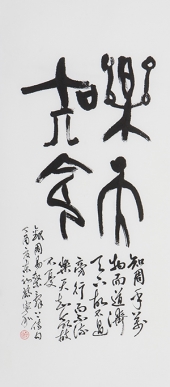 樂天
知命
知周乎萬
物而道濟
天下故不過
旁行而不流
樂天知命故
不憂
錄周易繫辭